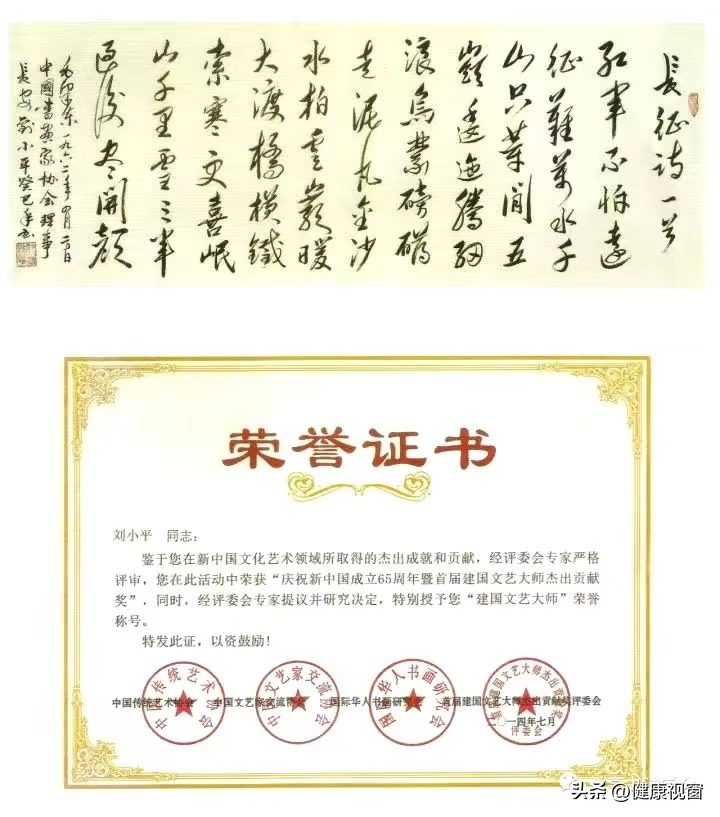 長征詩一首
紅軍不怕遠
征難萬水千
山只等闲五
嶺逶迤騰細
浪烏蒙磅礴
走泥丸金沙
水拍雲巖暖
大渡橋橫鐵
索寒更喜岷
山千里雪三軍
過後尽開顔
毛澤東一九六二年四月廿日
中國書画家协会理事
長安劉小平癸巳年书
荣誉证书
刘小平 同志：
鉴于您在新中国文化艺术领域所取得的杰出成就和贡献，经评委会专家严格
评审，您在此活动中荣获“庆祝新中国成立65周年暨首届建国文艺大师杰出贡献
奖”，同时，经评委会专家提议并研究决定，特别授予您“建国文艺大师”荣誉
称号。
特发此证，以资鼓励！
中国传统艺术协会 中国文艺家交流协会 国际华人书画研究会 首届建国文艺大师杰出贡献奖评委会
中国传统艺术协会
中国文艺家交流协会
国际华人书画研究会
首届建国文艺大师杰出贡献奖
一四年七月
评委会
头条 @健康视窗